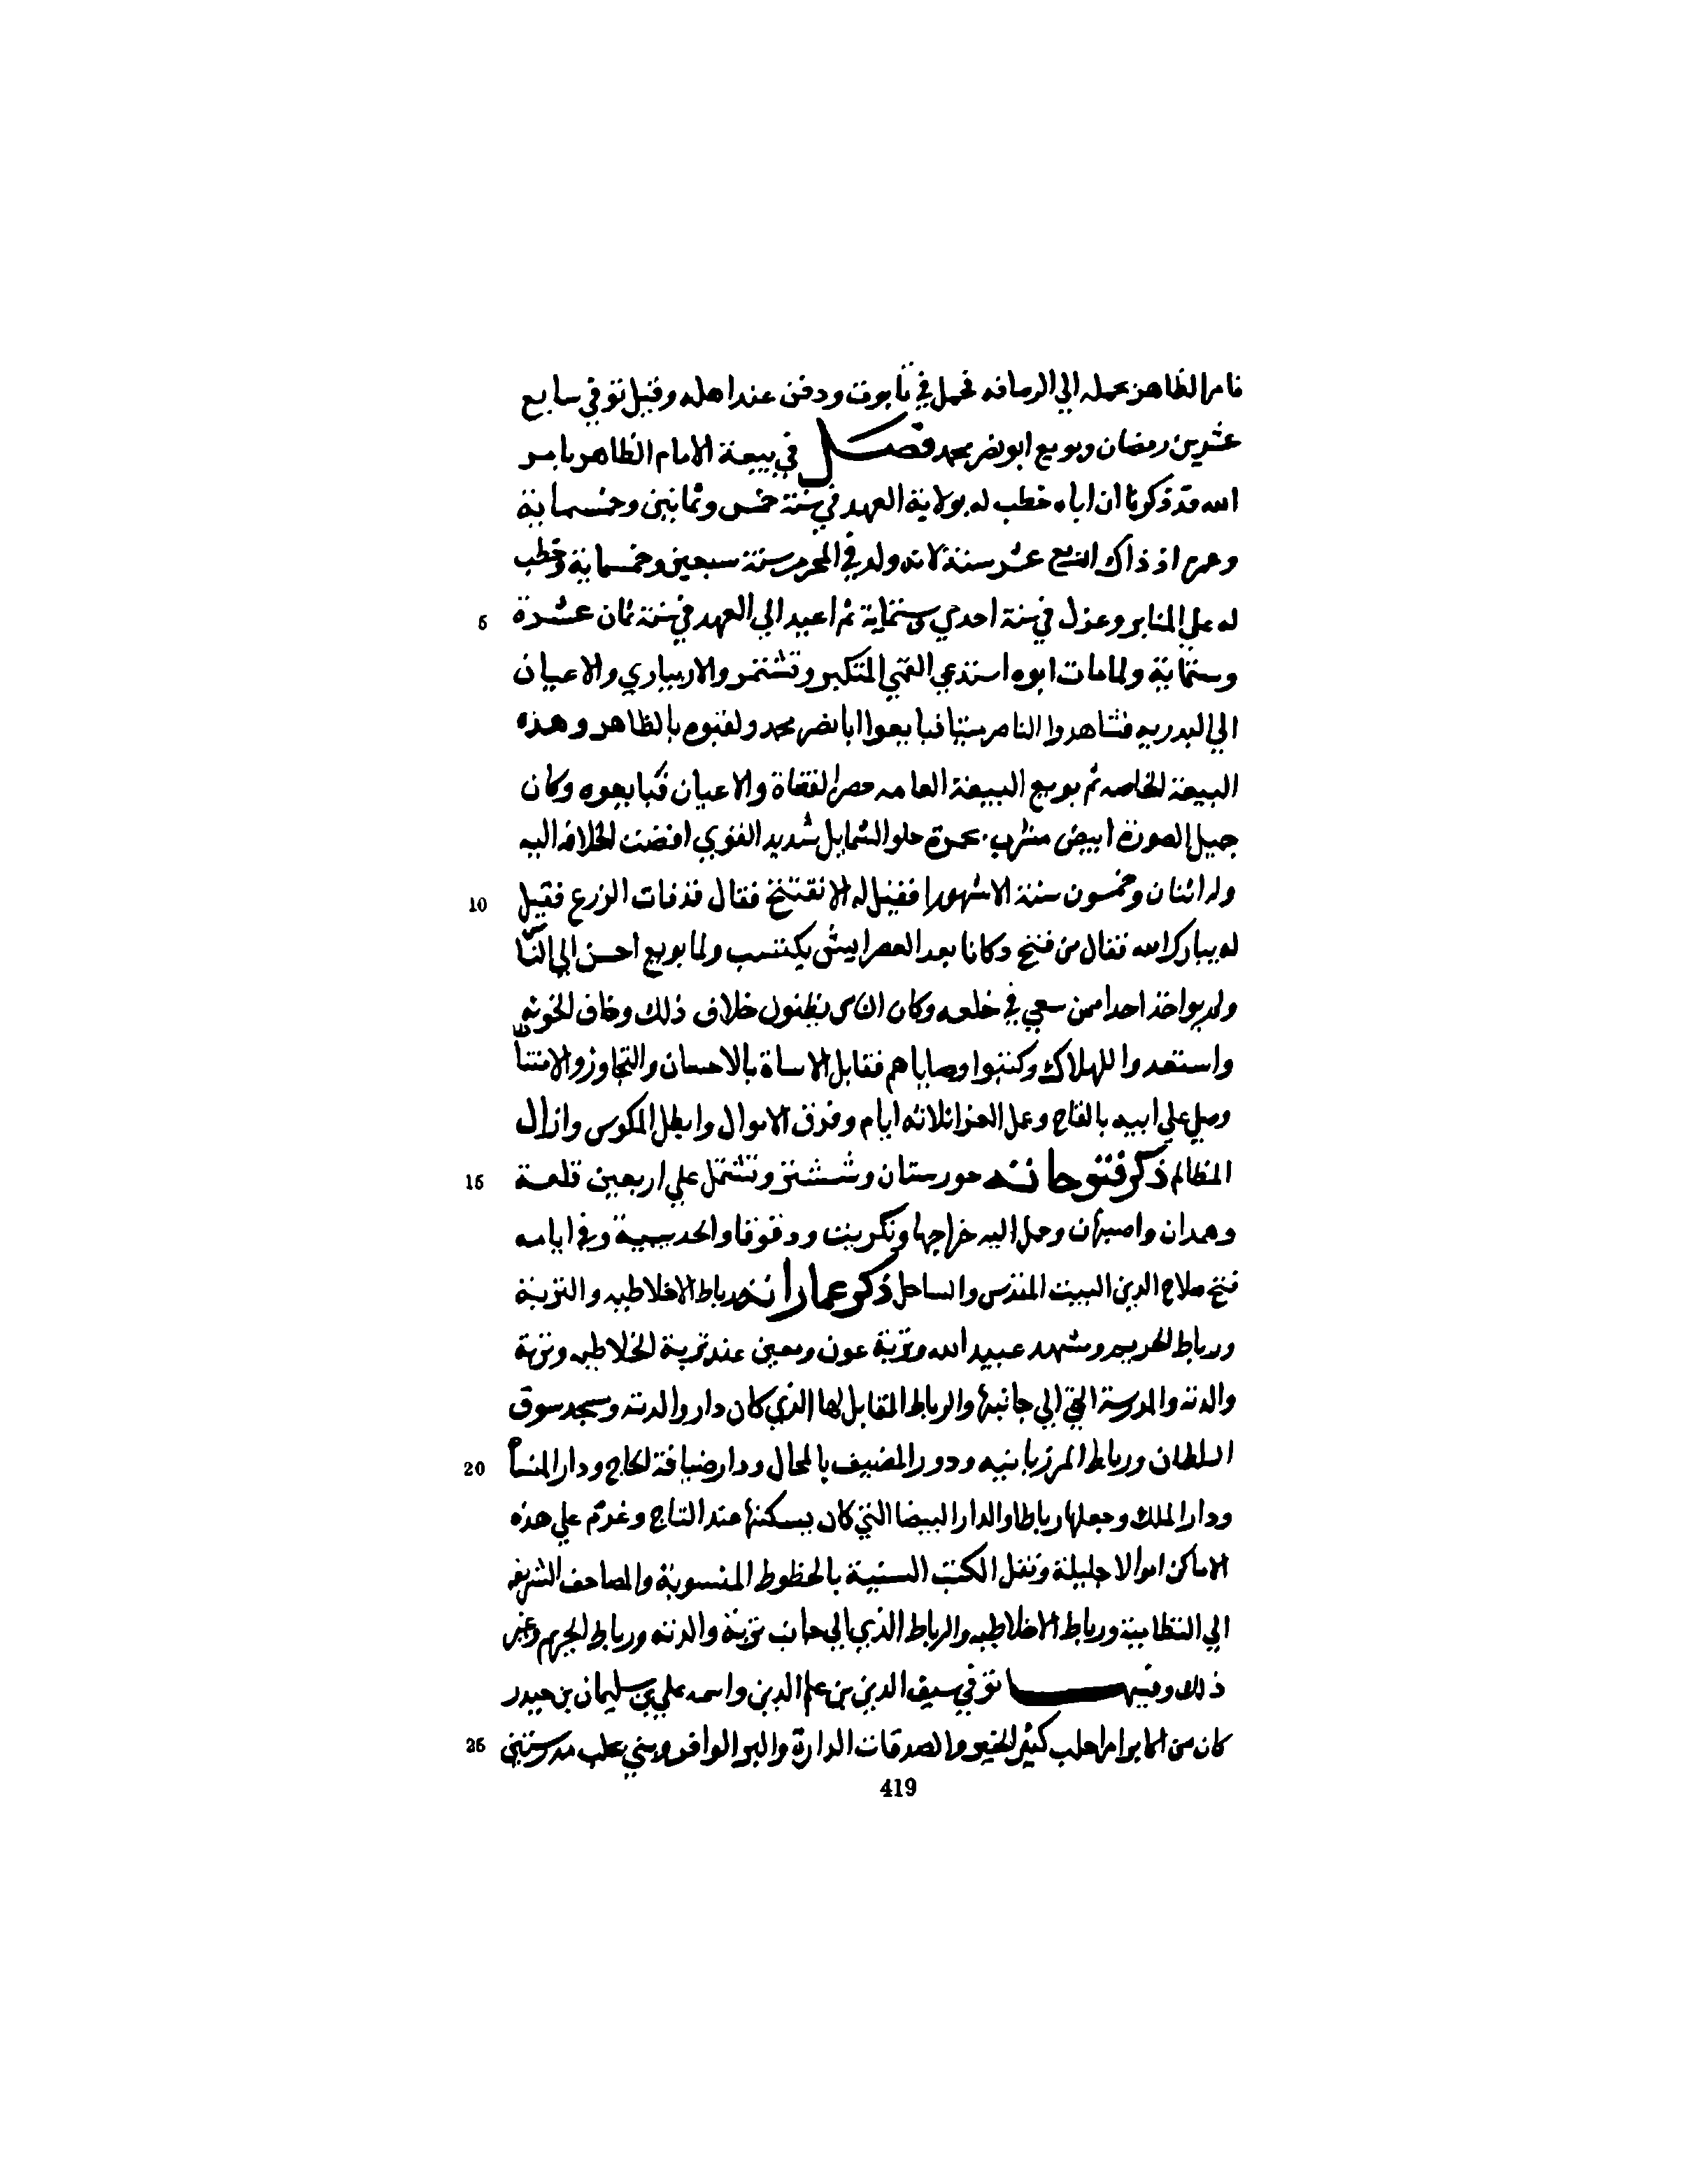 فامر الظاهر بحمله الي الرصافه فحمل في تابوت ودفن عند اهله وقيل توفي سابع
عشرين رمضان وبويع ابو نصر محمد فصل في بيعة الامام الظاهر بامر
الله قد ذكرنا ان اباه خطب له بولاية العهد في سنة خمس وثمانين وخمسماية
وعمره اذ ذاك اربع عشر سنة لانه ولد في المحرم سنة سبعين وخمسماية وخطب
5 له علي المنابر وعزل في سنة احدي وستماية ثم اعيد الي العهد في سنة ثمان عشرة
وستماية ولما مات ابوه استدعي القمي المتكبر وتشتمر والاربياري والاعيان
الي البدريه فشاهدوا الناصر ميتا فبايعوا ابا نصر محمد ولقبوه بالظاهر وهذه
البيعة الخاصه ثم بويع البيعة العامه حضر القضاة والاعيان فبايعوه وكان
جميل الصورة ابيض مشرب بحمرة حلو الشمايل شديد القوي افضت الخلافه اليه
10 وله اثنان وخمسون سنة الا شهورا فقيل له الا تتفتح فقال قد فات الزرع فقيل
له يبارك الله فقال من فتح دكانا بعد العصر ايش يكتسب ولما بويع احسن الي الناس
ولم يواخذ احدا ممن سعي في خلعه وكان الناس يظنون خلاف ذلك وخاف لخوته
واستعدوا للهلاك وكتبوا وصاياهم فقابل الاساة بالاحسان والتجاوز والامتنان
وصلي علي ابيه بالتاج وعمل العزا ثلاثه ايام وفرق الاموال وابطل المكوس وازال
15 المظالم ذكر فتوحاته خورستان وششتر وتشتمل علي اربعين قلعة
وهمدان واصبهان وحمل اليه خراجها وتكريت ودقوقا والحديثية وفي ايامه
فتح صلاح الدين البيت المقدس والساحل ذكر عماراته رباط الاخلاطيه والتربة
ورباط الحريم ومشهد عبيد الله وتربة عون ومعين عند تربة الخلاطيه وتربة
والدته والمدرسة التي الي جانبها والرباط المقابل لها الذي كان دار والدته ومسجد سوق
20 السلطان ورباط المرزبانيه ودور المضيف بالمحال ودار ضيافة الحاج ودار المسناة
ودار الملك وجعلها رباطا والدار البيضا التي كان يسكنها عند التاج وغرم علي هذه
الاماكن اموالا جليلة ونقل الكتب السنية بالخطوط المنسوبة والمصاحف الشريفه
الي النظامية ورباط الاخلاطيه والرباط الذي الي جانب تربة والدته ورباط الحريم وغير
ذلك وفيها توفي سيف الدين بن علم الدين واسمه علي بن سليمان بن حيدر
25 كان من اكابر امرا حلب كثير الخير والصدقات الدارة والبر الوافر وبني بحلب مدرستين
419